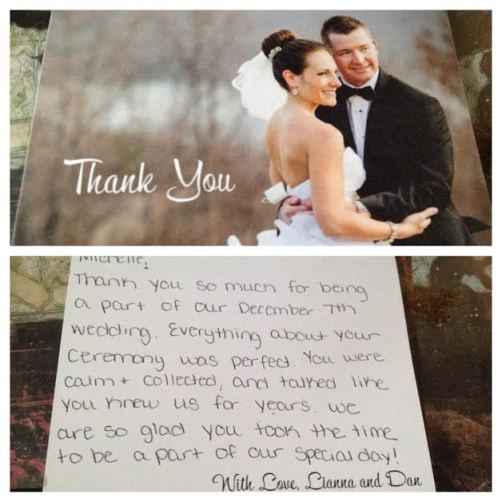 Thank You
Michelle,
Thank you so much for being
a part of our December 7th
wedding. Everything about your
ceremony was perfect. You were
calm + collected, and talked like
you knew us for years. We
are so glad you took the time
to be a part of our special day!
With Love, Lianna and Dan